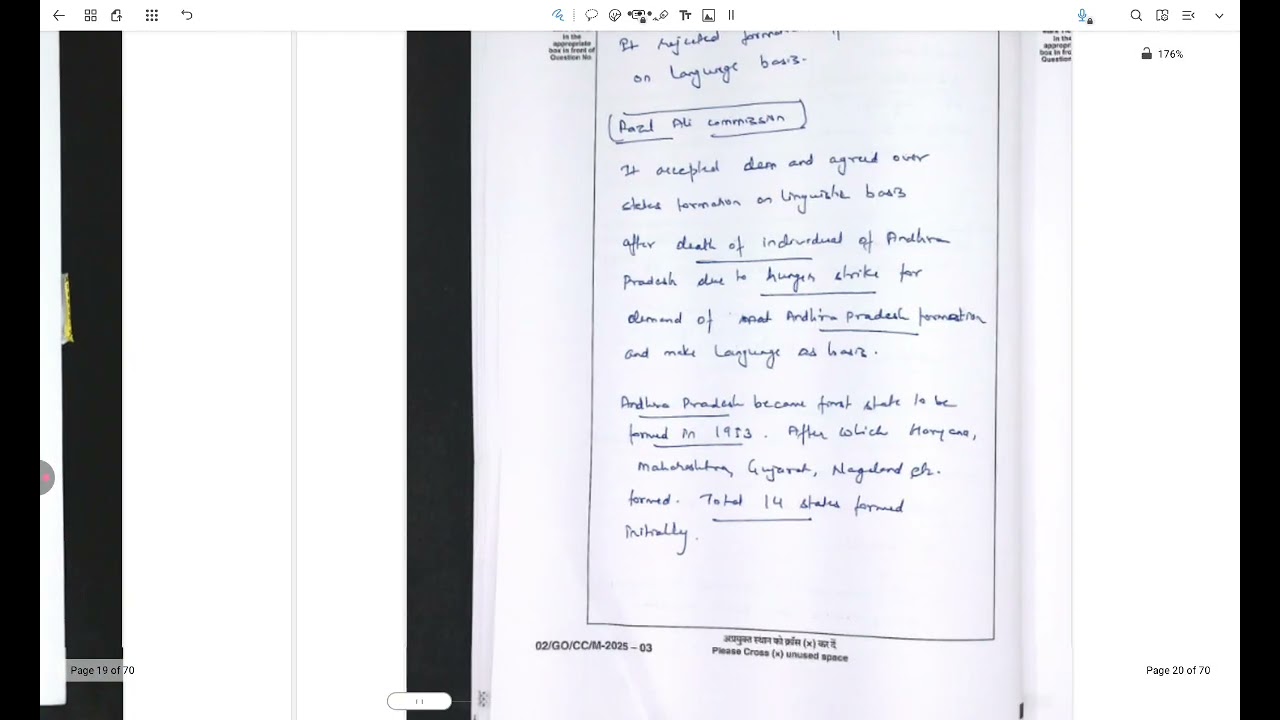 176%
In the
appropriate
box in front of
Question No
It rejected
on Language basis.
Fazl Ali commission
It accepted dem and agreed over
states formation on linguistic basis
after death of individual of Andhra
Pradesh due to hunger strike for
demand of Andhra Pradesh formation
and make Language as basis.
Andhra Pradesh became first state to be
formed in 1953. After which Haryana,
Maharashtra, Gujarat, Nagaland etc.
formed. Total 14 states formed
initially.
02/GO/CC/M-2025 – 03
अप्रयुक्त स्थान को क्रॉस (x) कर दें
Please Cross (x) unused space
In the
Question
Page 19 of 70
Page 20 of 70